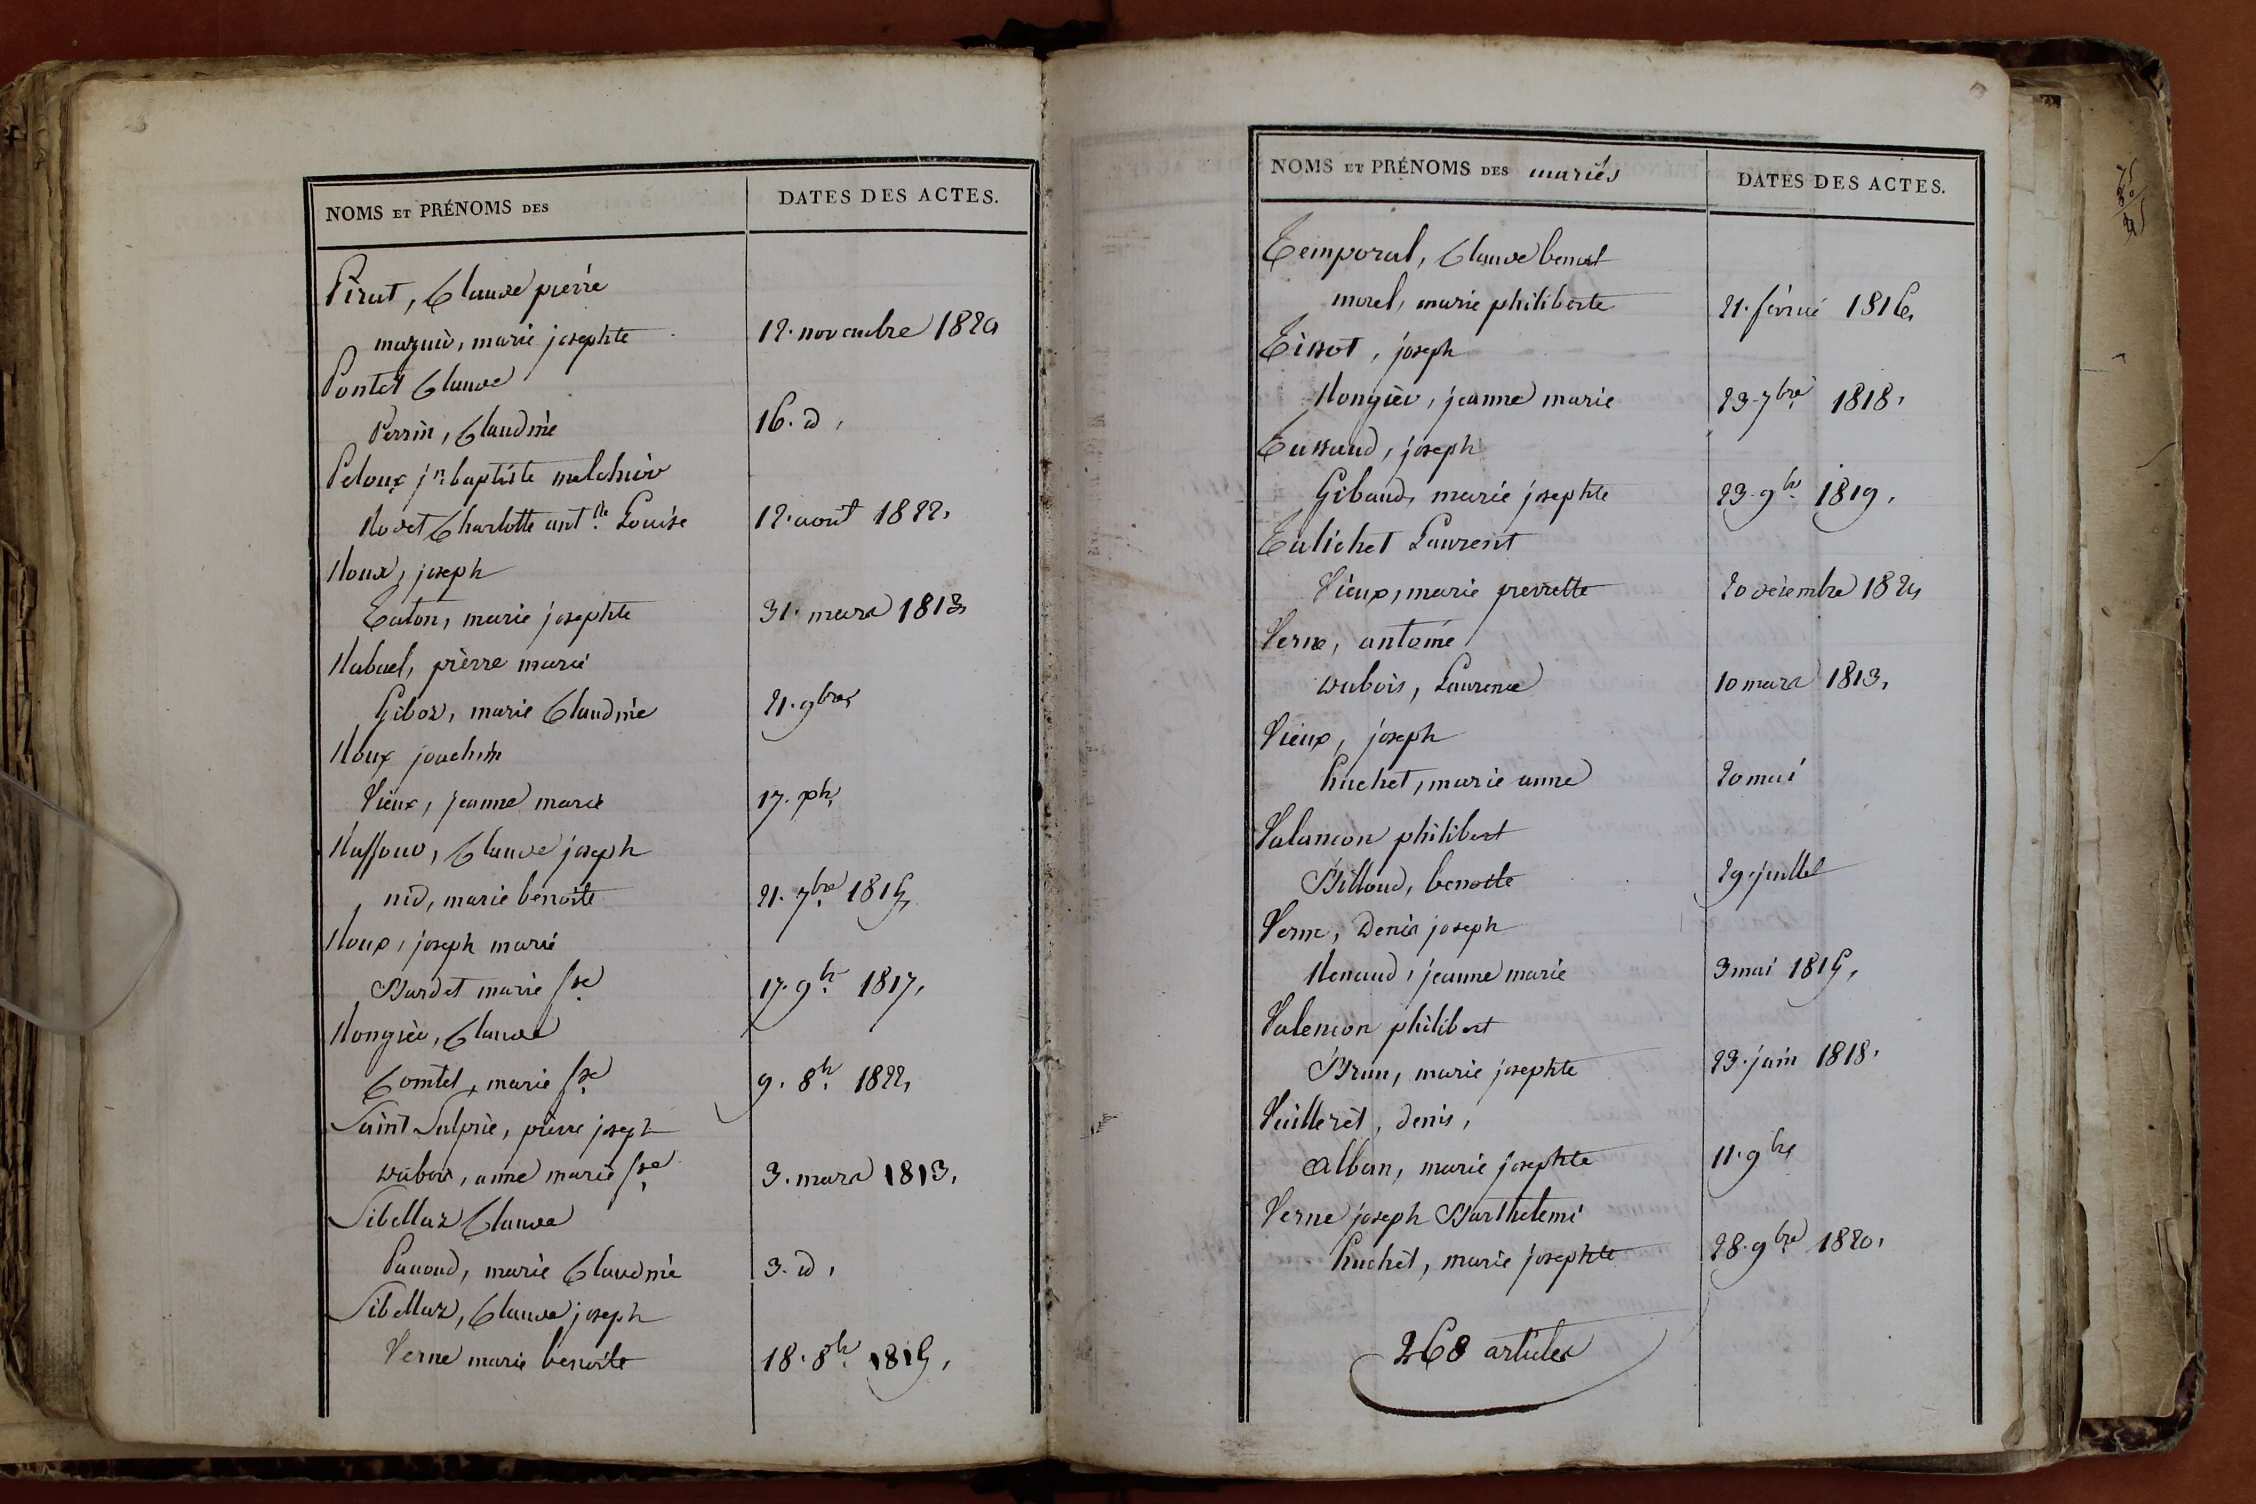 NOMS ET PRÉNOMS DES
DATES DES ACTES.
Pirat, Claude pierre
mazuir, marie josephte 12. novembre 1820
Pontet Claude
Perrin, Claudine 16. d,
Peloux jn baptiste melchior
Rodet Charlotte antlle Louise 12. aout 1822,
Roux, joseph
Caton, marie josephte 31. mars 1813,
Rabuel, pierre marie
Giboz, marie Claudine 21. 9bre,
Roux joachim
Vieux, jeanne marie 17.
Ruffoud, Claude joseph
nid, marie benoite 21. 7bre 1815,
Roux, joseph marie
Bardet marie fse 17. 9br 1817,
Rongier, Claude
Comtet, marie fse 9. 8br 1822,
Saint Sulpice, pierre joseph
Dubois, anne marie fse 3. mars 1813,
Sibellaz Claude
Pauoud, marie Claudine 3. d,
Sibellaz, Claude joseph
Verne marie benoite 18. 8br 1815,
NOMS ET PRÉNOMS DES mariés
DATES DES ACTES.
Temporal, Claude benoit
morel, marie philiberte 21. février 1816,
Tissot, joseph
Rongier, jeanne marie 23. 7bre 1818,
Tussaud, joseph
Gibaud, marie josephte 23. 9br 1819,
Tulichet Laurent
Vieux, marie pierrette 20 décembre 1821
Verne, antoine
Dubois, Laurence 10 mars 1813,
Vieux, joseph
huchet, marie anne 20 mai
Valancon philibert
Billoud, benoite 29. juillet
Verne, Denis joseph
Renaud, jeanne marie 3 mai 1815,
Valencon philibert
Brun, marie josephte 23. juin 1818.
Vuilleret, denis,
alban, marie josephte 11. 9bre
Verne joseph Barthelemi
huchet, marie josephte 28. 9bre 1820,
268 articles